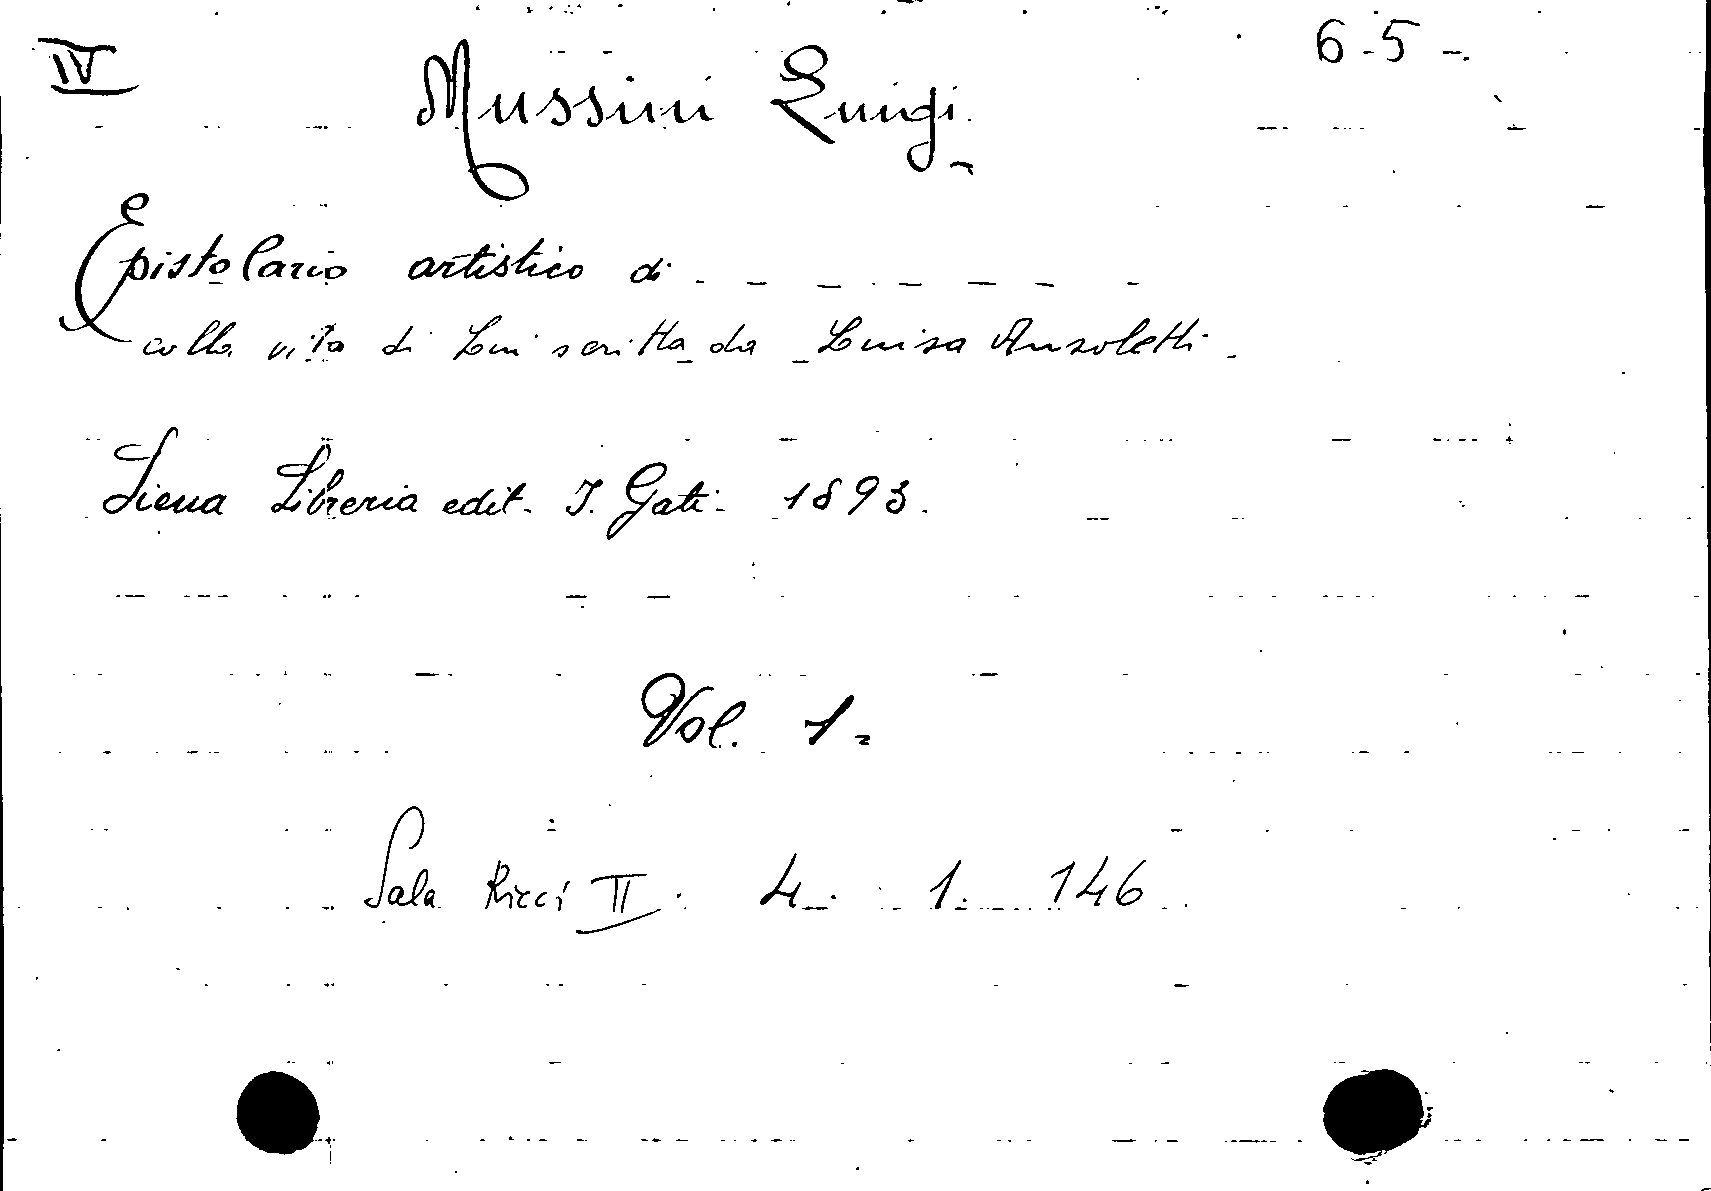 IV
6-5-.
Mussini Luigi.
Epistolario artistico di - - - - - - -
colla vita di Lui scritta da Luisa Anzoletti.
Siena Libreria edit. I. Gati. 1893.
Vol. 1.
Sala Ricci II. 4. 1. 146